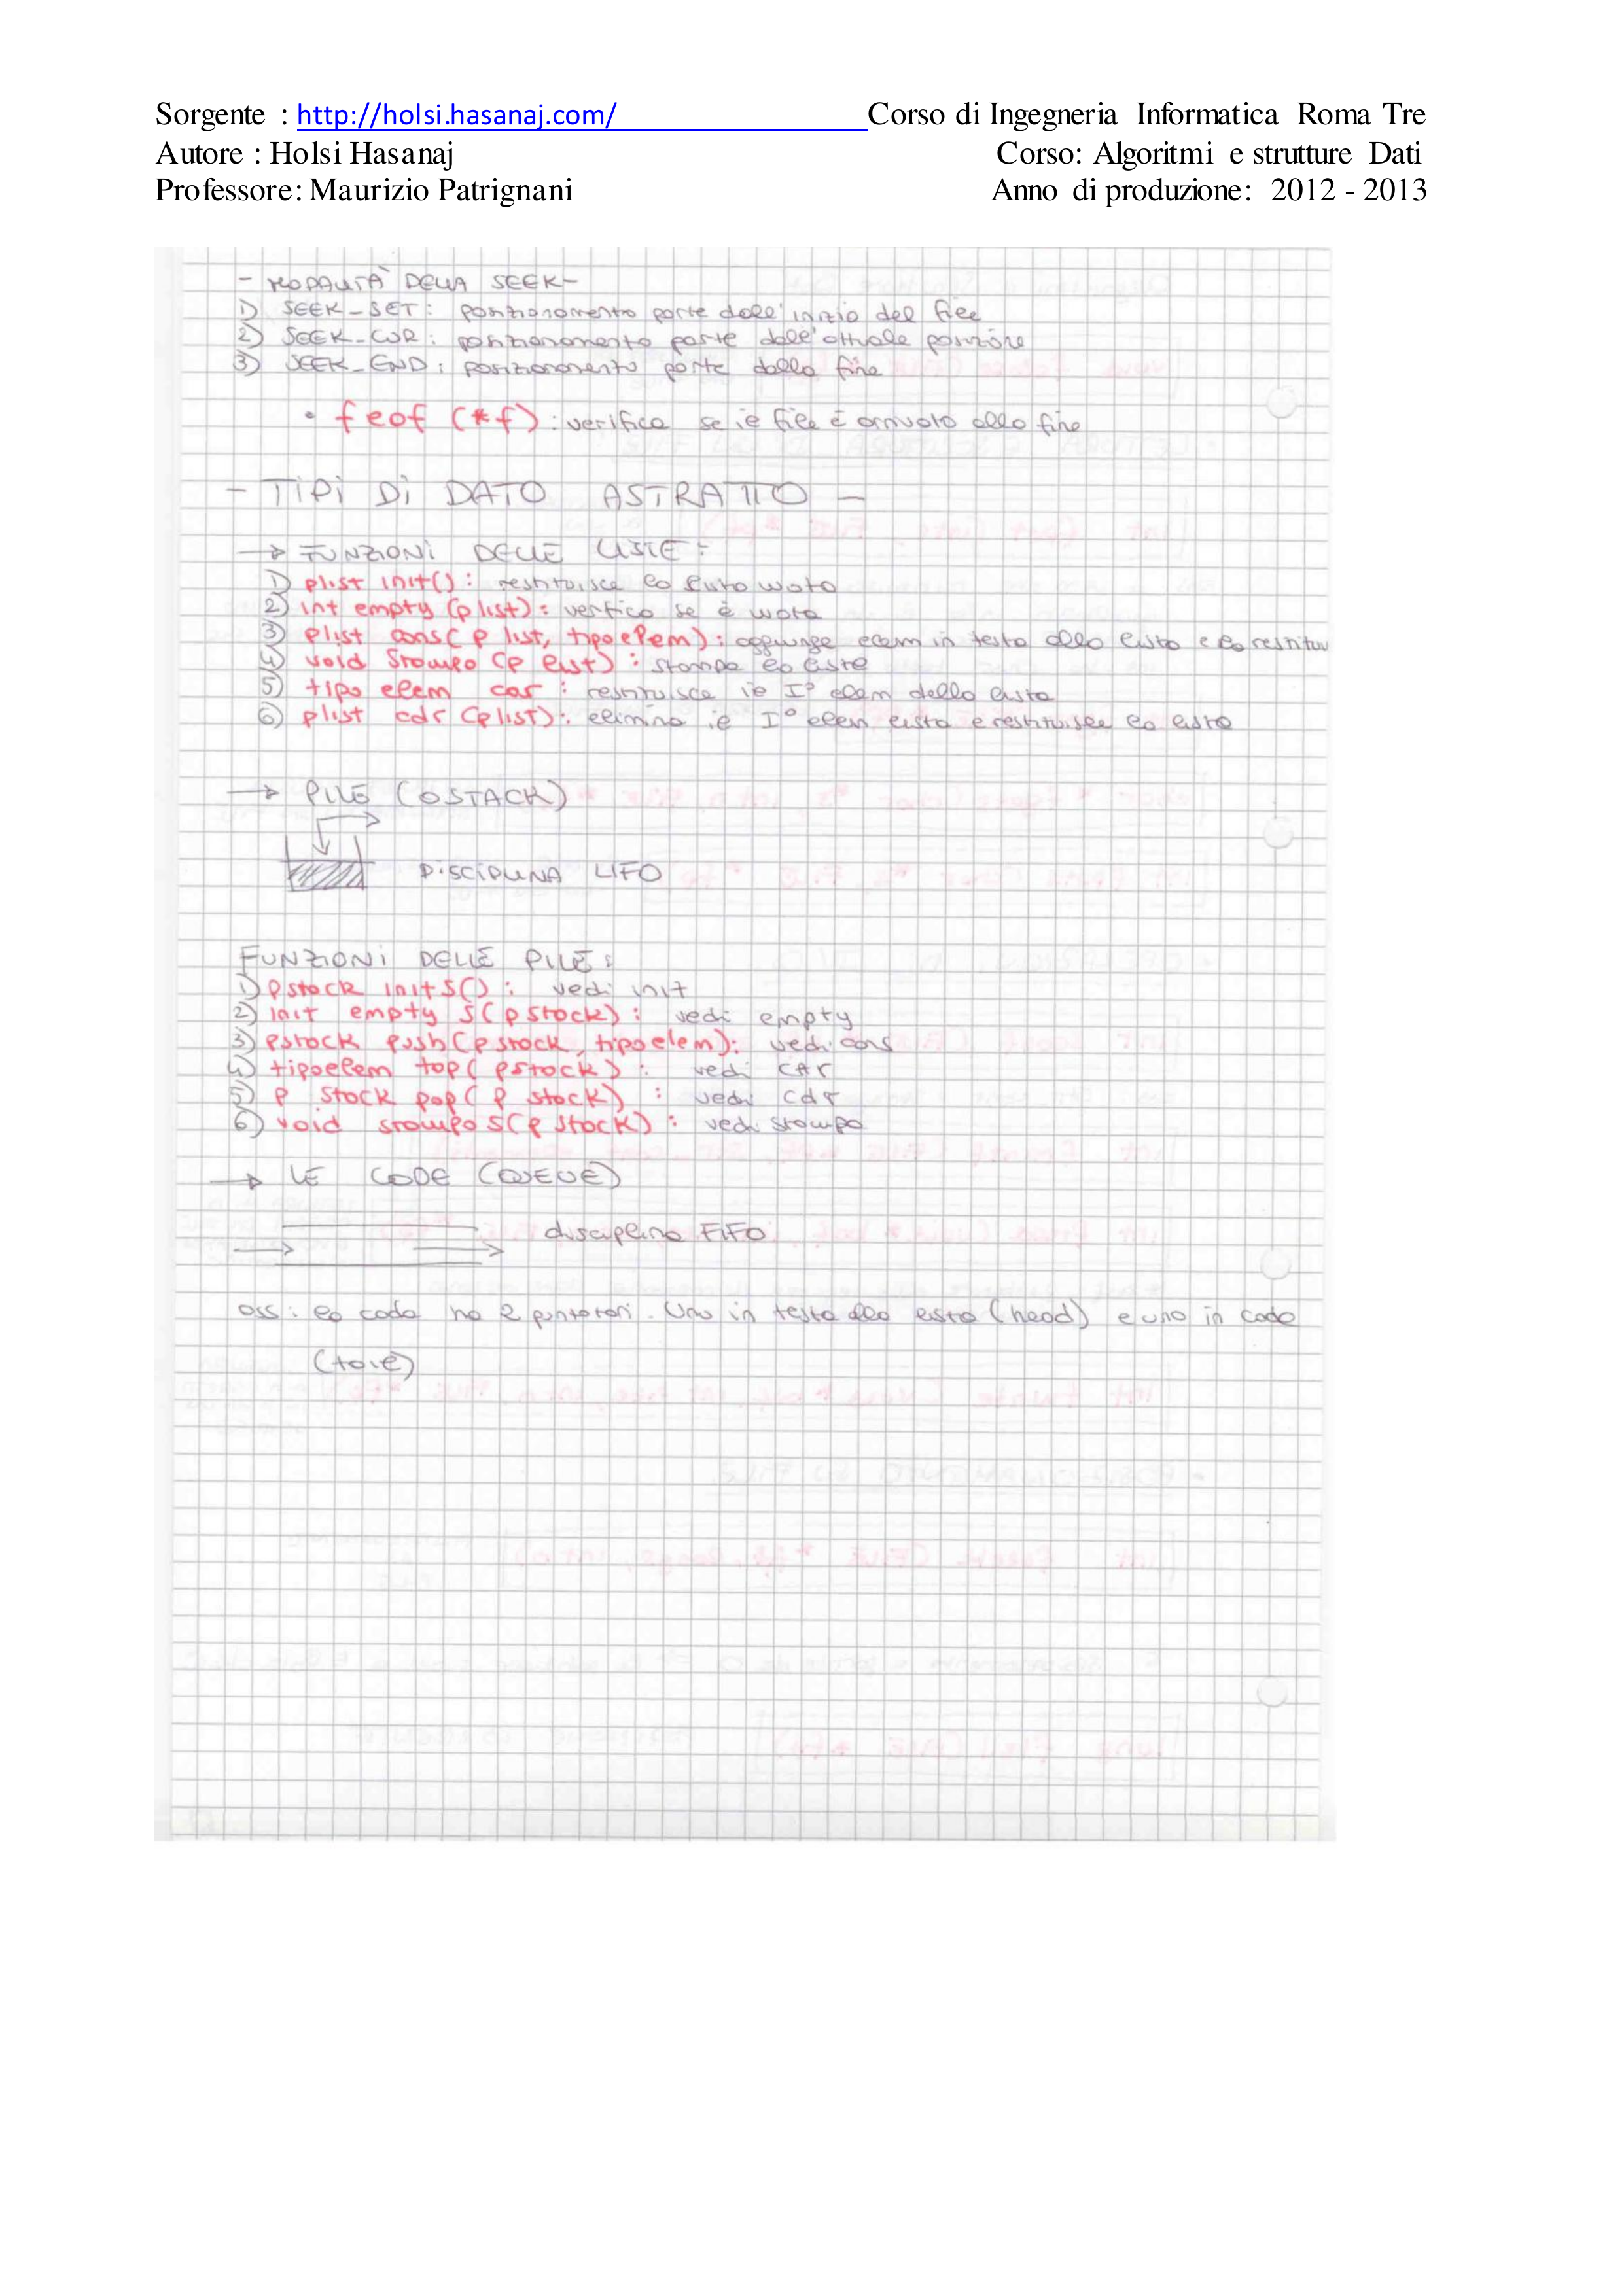 Sorgente : http://holsi.hasanaj.com/ Corso di Ingegneria Informatica Roma Tre
Autore : Holsi Hasanaj Corso: Algoritmi e strutture Dati
Professore: Maurizio Patrignani Anno di produzione: 2012 - 2013
- MODALITÀ DELLA SEEK-
1) SEEK_SET: posizionamento parte dall'inizio del file
2) SEEK_CUR: posizionamento parte dall'attuale posizione
3) SEEK_END: posizionamento parte dalla fine
• feof (*f): verifica se il file è arrivato alla fine
- TIPI DI DATO ASTRATTO -
→ FUNZIONI DELLE LISTE:
1) plist init(): restituisce la lista vuota
2) int empty (plist): verifica se è vuota
3) plist cons( p list, tipoelem): aggiunge elem in testa alla lista e la restitui
4) void stampa (p list): stampa la lista
5) tipo elem car: restituisce il I° elem della lista
6) plist cdr (plist): elimina il I° elem lista e restituisce la lista
→ PILE (O STACK)
DISCIPLINA LIFO
FUNZIONI DELLE PILE:
1) pstack initS(): vedi init
2) init empty S( pstack): vedi empty
3) pstack push( pstack, tipoelem): vedi cons
4) tipoelem top( pstack): vedi car
5) p stack pop( p stack): vedi cdr
6) void stampa S( p stack): vedi stampa
→ LE CODE (QUEUE)
disciplina FIFO
oss: la coda ha 2 puntatori. Uno in testa alla lista (head) e uno in coda
(tail)